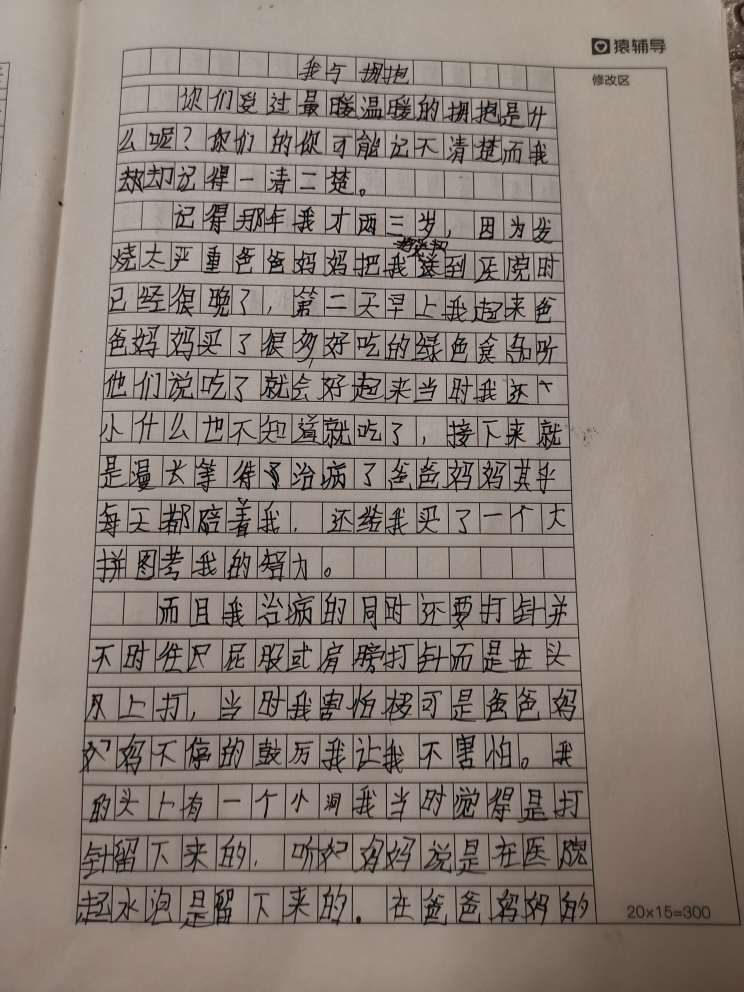 猿辅导
修改区
我与拥抱
你们受过最暖温暖的拥抱是什
么呢？你们的你可能记不清楚而我
却却记得一清二楚。
记得那年我才两三岁，因为发
烧太严重爸爸妈妈把我送到医院时
已经很晚了，第二天早上我起来爸
爸妈妈买了很多好吃的绿色食品听
他们说吃了就会好起来当时我还
小什么也不知道就吃了，接下来就
是漫长等待了治病了爸爸妈妈其乎
每天都陪着我，还给我买了一个大
拼图考我的智力。
而且我治病的同时还要打针并
不时往尺屁股或肩膀打针而是在头
上打，当时我害怕极可是爸爸妈
妈不停的鼓厉我让我不害怕。我
的头上有一个小洞我当时觉得是打
针留下来的，听妈妈说是在医院
起水泡是留下来的。在爸爸妈妈的
20×15=300